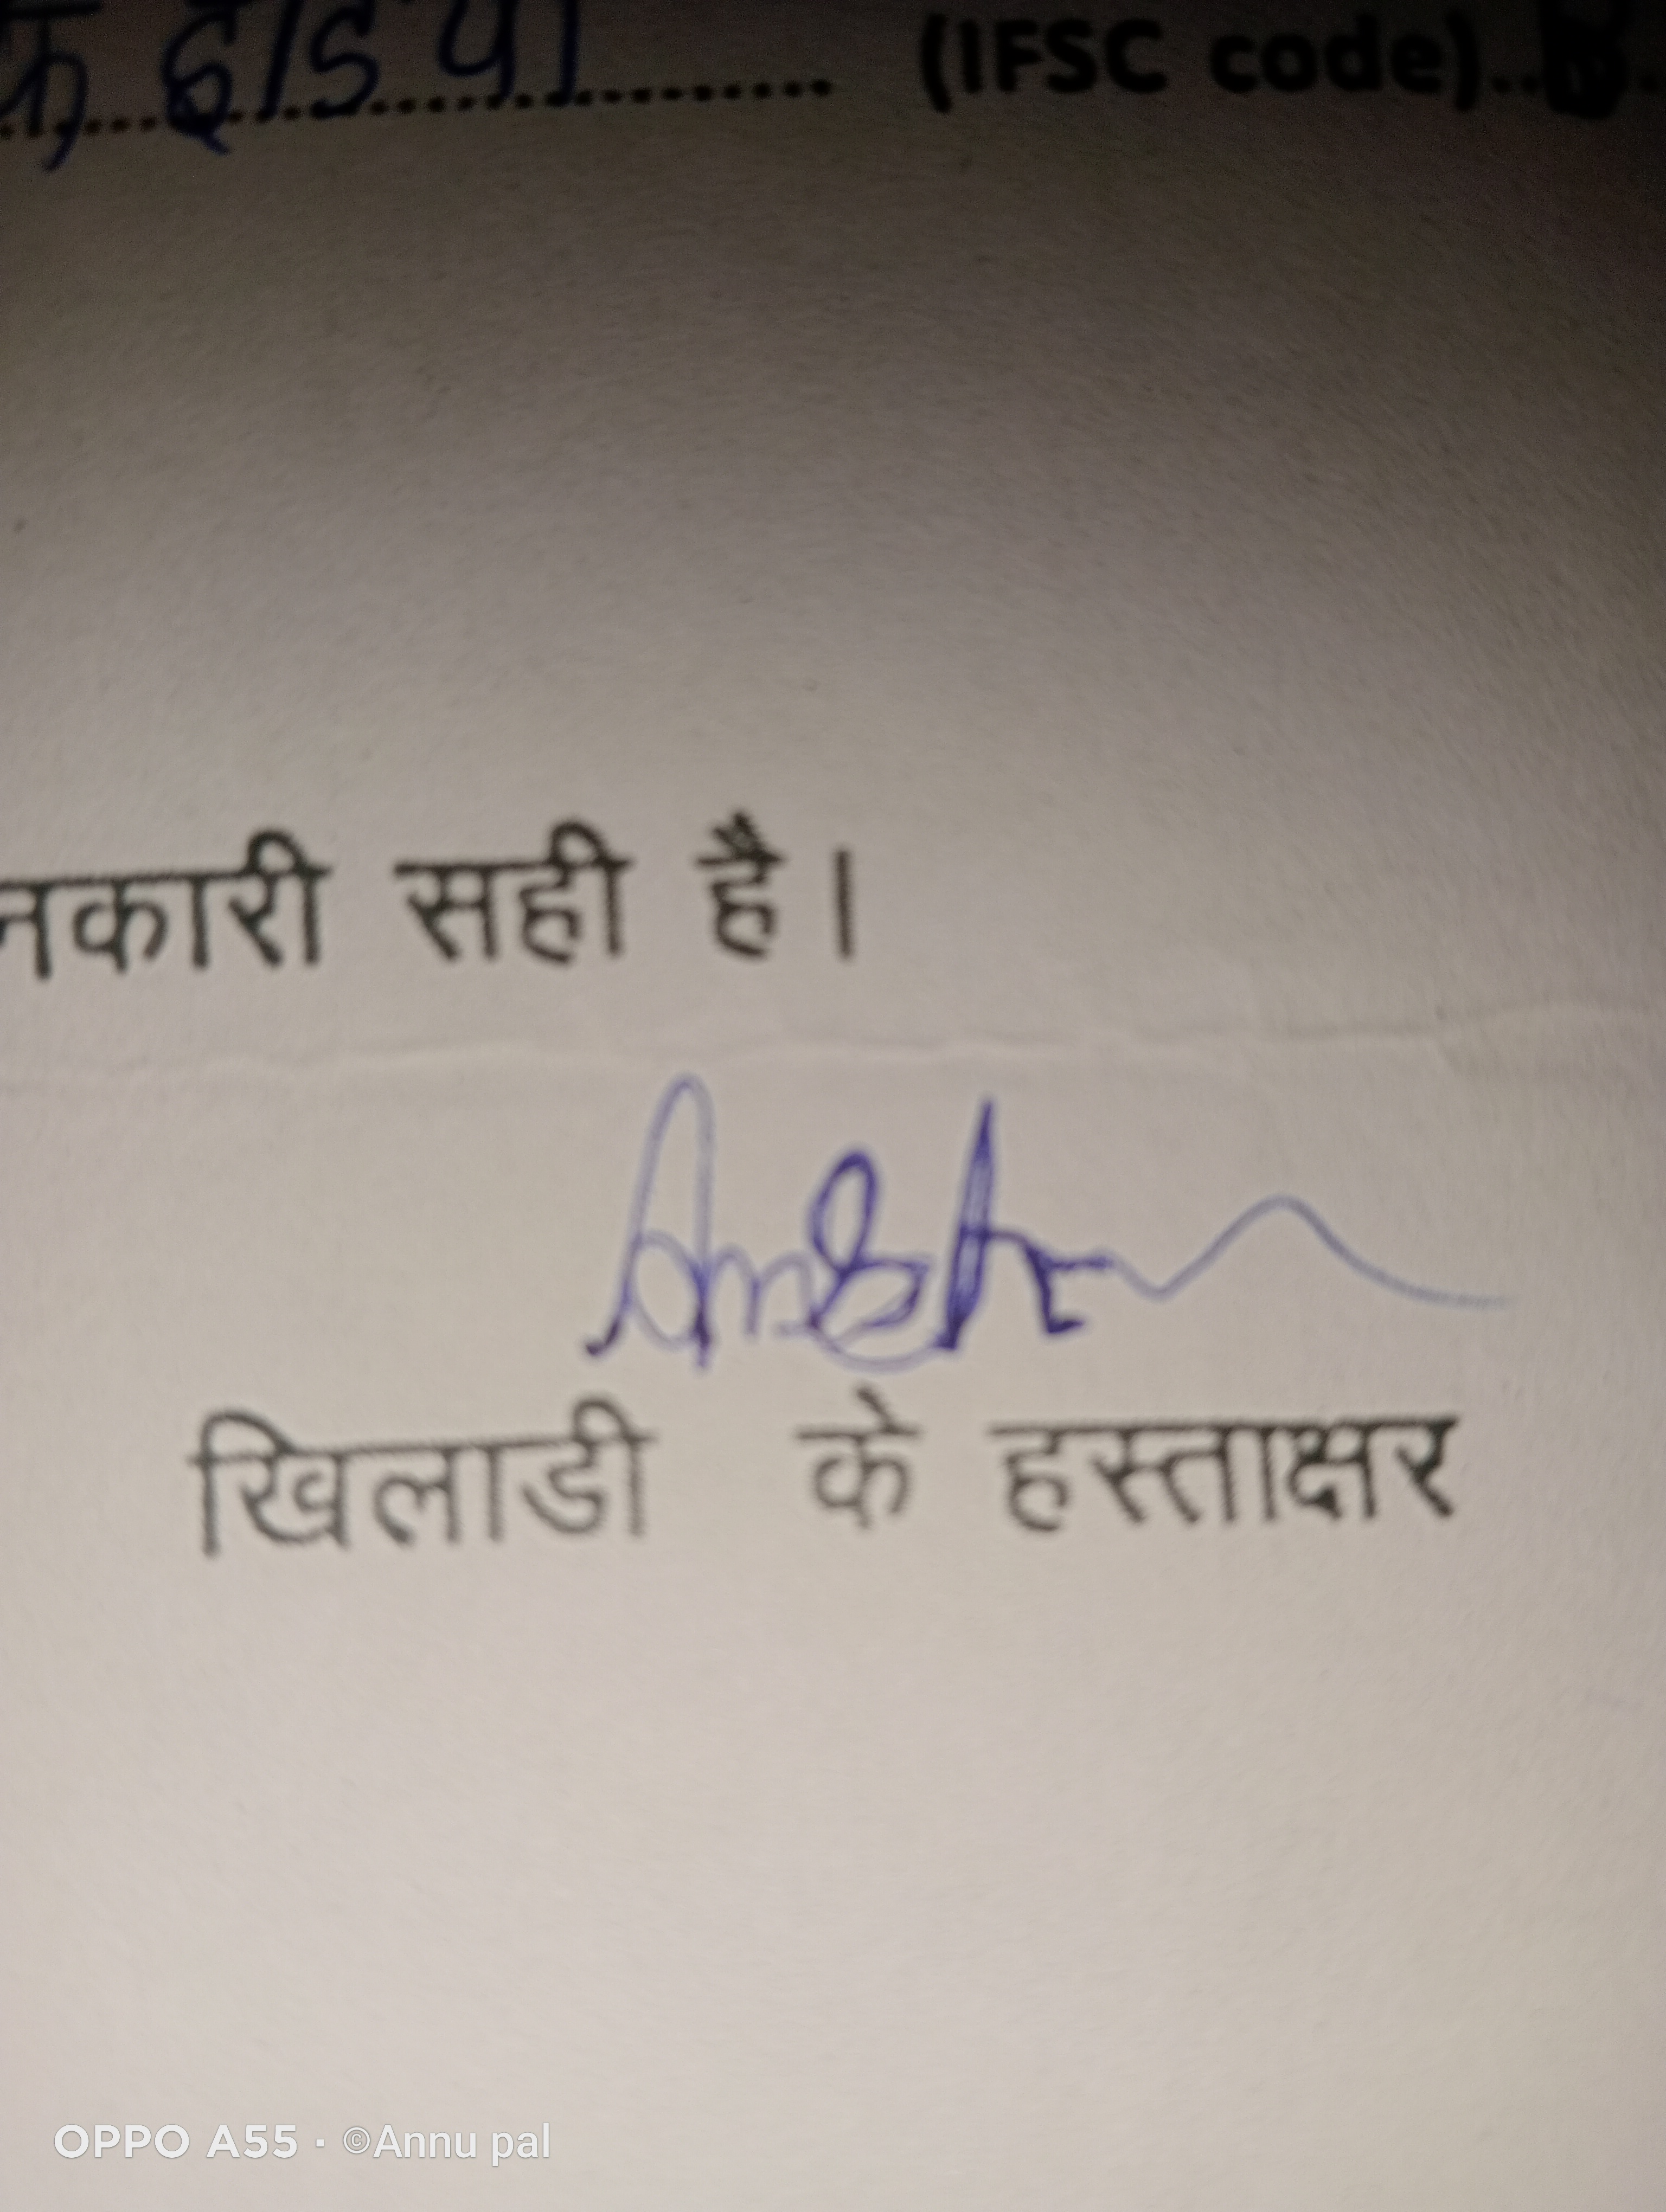 इंडिया (IFSC code)
नकारी सही है।
खिलाडी के हस्ताक्षर
OPPO A55 · ©Annu pal